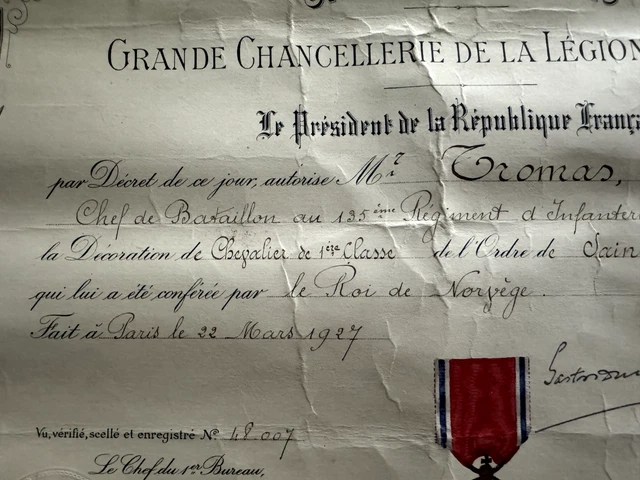 GRANDE CHANCELLERIE DE LA LÉGION
Le Président de la République França
par Décret de ce jour, autorise Mr Tromas,
Chef de Bataillon au 135ème Régiment d'Infanter
la Décoration de Chevalier de 1ère Classe de l'Ordre de Sain
qui lui a été conférée par le Roi de Norvège.
Fait à Paris le 22 Mars 1927
Vu, vérifié, scellé et enregistré No 48.007
Le Chef du 1er Bureau,